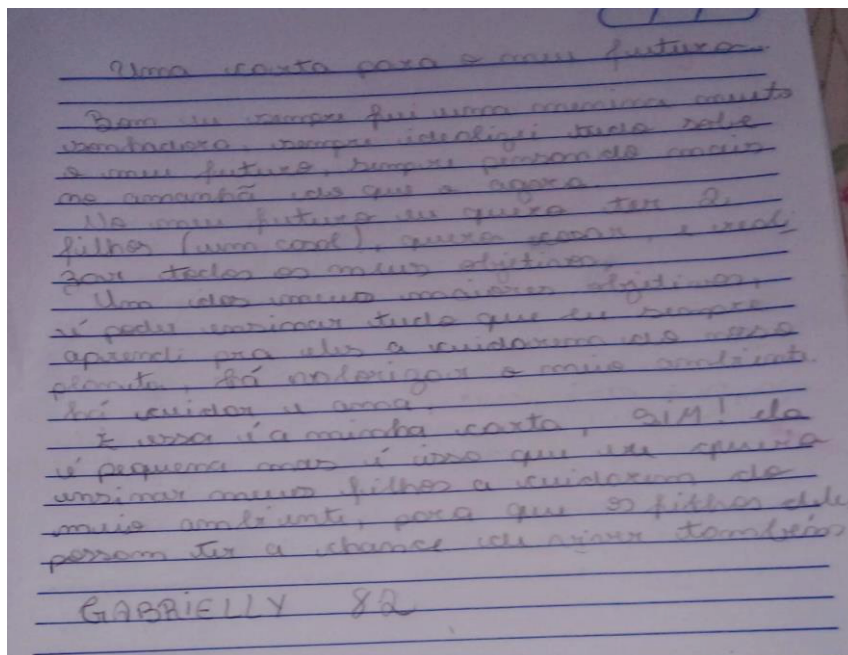 Uma carta para o meu futuro.
Bom eu sempre fui uma menina muito
sonhadora, sempre idealizei tudo sobre
o meu futuro, sempre pensando mais
no amanhã do que o agora.
No meu futuro eu quero ter 2
filhos (um casal), quero casar, e reali
zar todos os meus objetivos.
Um dos meus maiores objetivos,
é poder ensinar tudo que eu sempre
aprendi pra eles a cuidarem do nosso
planeta, o meio ambiente.
cuidar e ama.
E essa é a minha carta, SIM! ela
é pequena mas é isso que eu quero
ensinar meus filhos a cuidarem do
meio ambiente, para que os filhos dele
possam ter a chance de viver também
GABRIELLY 82